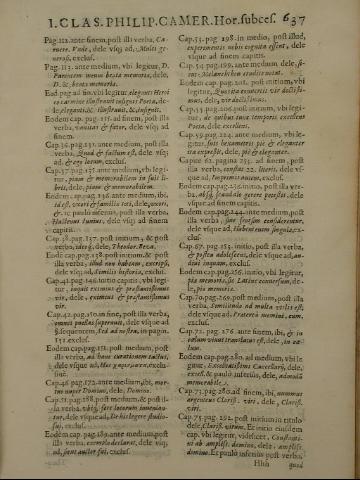 I. CLAS. PHILIP. CAMER. Hor. subces. 637
Pag. 112. ante finem, post illa verba, Ca-
merc. Vnde, dele vsq; ad, Multi ge-
neros, exclus.
Pag. 113. ante medium, vbi legitur, D.
Parentem meum beata memoria, dele,
D. & beata memoria.
Ead pag ad finē, vbi legitur, eleganti Heroi
co carmine illustravit insignis Poeta, de-
le, eleganti. & illustravit, & insignis.
Eodem cap. pag. 115. ad finem, post illa
verba, vanitur & fatur, dele vsq; ad
finem.
Cap. 36. pag. 132. ante medium, post illa
verba, Quod & factum est, dele vsq;
ad, & ego horum, exclus.
Cap. 37. pag. 135. ante medium, vbi legi-
tur, pium & memorabilem in suis li-
bris, dele, pium & memorabilem.
Eodem cap. pag. 136. ante medium, ibi,
id est, exerti & familia tori, dele, exerti,
finem
capitis.
Cap. 38. pag. 137. post initium, & post
verba, ide q́;, dele, Theodor. Beza.
Eodē cap. pag. 138. post initium, & post
illa verba, illud non habeant, exceps,
dele vsq; ad, similis historia, exclus.
Cap. 42. pag. 146. initio capitis, vbi legi-
tur, inquit eximius & praestantissimus
vir, dele, eximius & praestantissimus
vir.
Cap. 42. pag. 150. in fine, post illa verba,
omnis poetas superauit, dele vsque ad
§. sequentem, Sed ad nostra, in pagin.
151. exclus.
Eodem cap. pag. 151. post medium, post
illa verba, ad hanc curationem tactus,
dele vsque ad,
exclus.
Cap. 46. pag. 172. ante medium, ibi, mor-
tuo nuper Domino, dele, Domino.
Cap. 51. pag. 188. post medium, & post il-
la verba vbiq́; fere locorum inuenian-
tur, dele vsque ad, De his legere studio-
sus, exclus.
Eodem cap. pag. 189. ante medium, post
illa verba, coremodo declarat, dele vsq;
ad, sunt autor fuit, exclus.
Cap. 53. pag. 198. in medio, post illud,
experimentis nobis cognita essent, dele
vsque ad finem capitis.
Cap. 54. pag. 199. ante medium, dele, si-
cut, Melanchthon erudite notat.
Eodem cap. pag. 201. post initium, vbi
legitur, Quo ita enuerit vir doctis-
simus, dele, vir doctissimus.
Cap. 55. pag. 206. post initium, vbi legi-
tur, de quibus tuna temporis excellens
Poeta, dele excellens.
Cap. 59. pag. 224. ante medium, vbi le-
gitur, suis hexametris pie & eleganter
ita expressit, dele, pie & eleganter.
Capite 62. pagina 235. ad finem, post
illa verba, constas 22. literis. dele vs-
que ad, Proprium autem, exclus.
Eodem cap. pag. 236. initio, post illa ver-
ba, absq́; scandalo gerere potuisset, dele
vsque ad finem capitis.
Eodem cap. pag. 244. ante medium, post
illa verba, sine sensum consideraremus,
dele vsque ad, Habent enim singula, ex-
clus.
Cap. 67. pag. 253. initio, post illa verba,
& passim adolescenti, dele vsque ad, an-
didi inquam, exclus.
Eodem cap. pag. 256. initio, vbi legitur,
pia memoria, ad Latine conuersum, de-
le, pia memoria.
Cap. 70. pag. 269. post medium, post illa
verba, meridionalibus vsitatissimi est,
dele vsque ad, Prateria nemini, cum,
exclus.
Cap. 72. pag. 276. ante finem, ibi, & in
cælum viuus translatus est, dele, in cæ-
lum.
Eodem cap. pag. 280. ad medium, vbi le-
gitur, Excellentissimi Camerarij, dele,
excel. & paulo inferius, dele, admodū
memorabile.
Cap. 73. pag. 280. ad finem, ibi, nummus
argenteus Clariss. viri, dele, Clariss.
viri.
Cap. 75. pag. 292. post initium in titulo
dele, Clariss. virum. Et initio eiusdem
cap. vbi legitur, videlicet, Constanti-
ni ab ampliss. domino, dele, ampliss.
domino. Et paulo inferius post verba,
Hhh quod